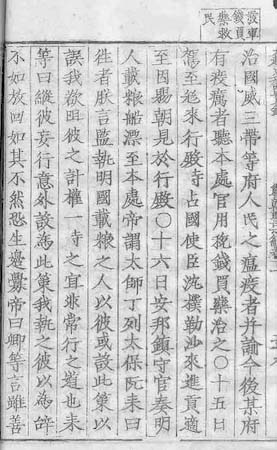 錢買藥救民
治國威三帶等府人民之瘟疫者并諭今後某府
有疾癘者聽本處官用稅錢買藥治之〇十五日
駕至趂來行殿寺占國使臣沈撲勒沙來進貢適
至因賜朝見於行殿〇十六日安邦鎮守官奏明
人載粮船漂至本處帝謂太師丁列太保阮耒曰
往者朕言監執明國載粮之人以彼或設此策以
誤我欲阻彼之計權一寺之宜非常行之道也耒
等曰縱彼妄行意外設為此策我執之彼以為辞
不如放回如其不然恐生邊釁帝曰卿等言雖善